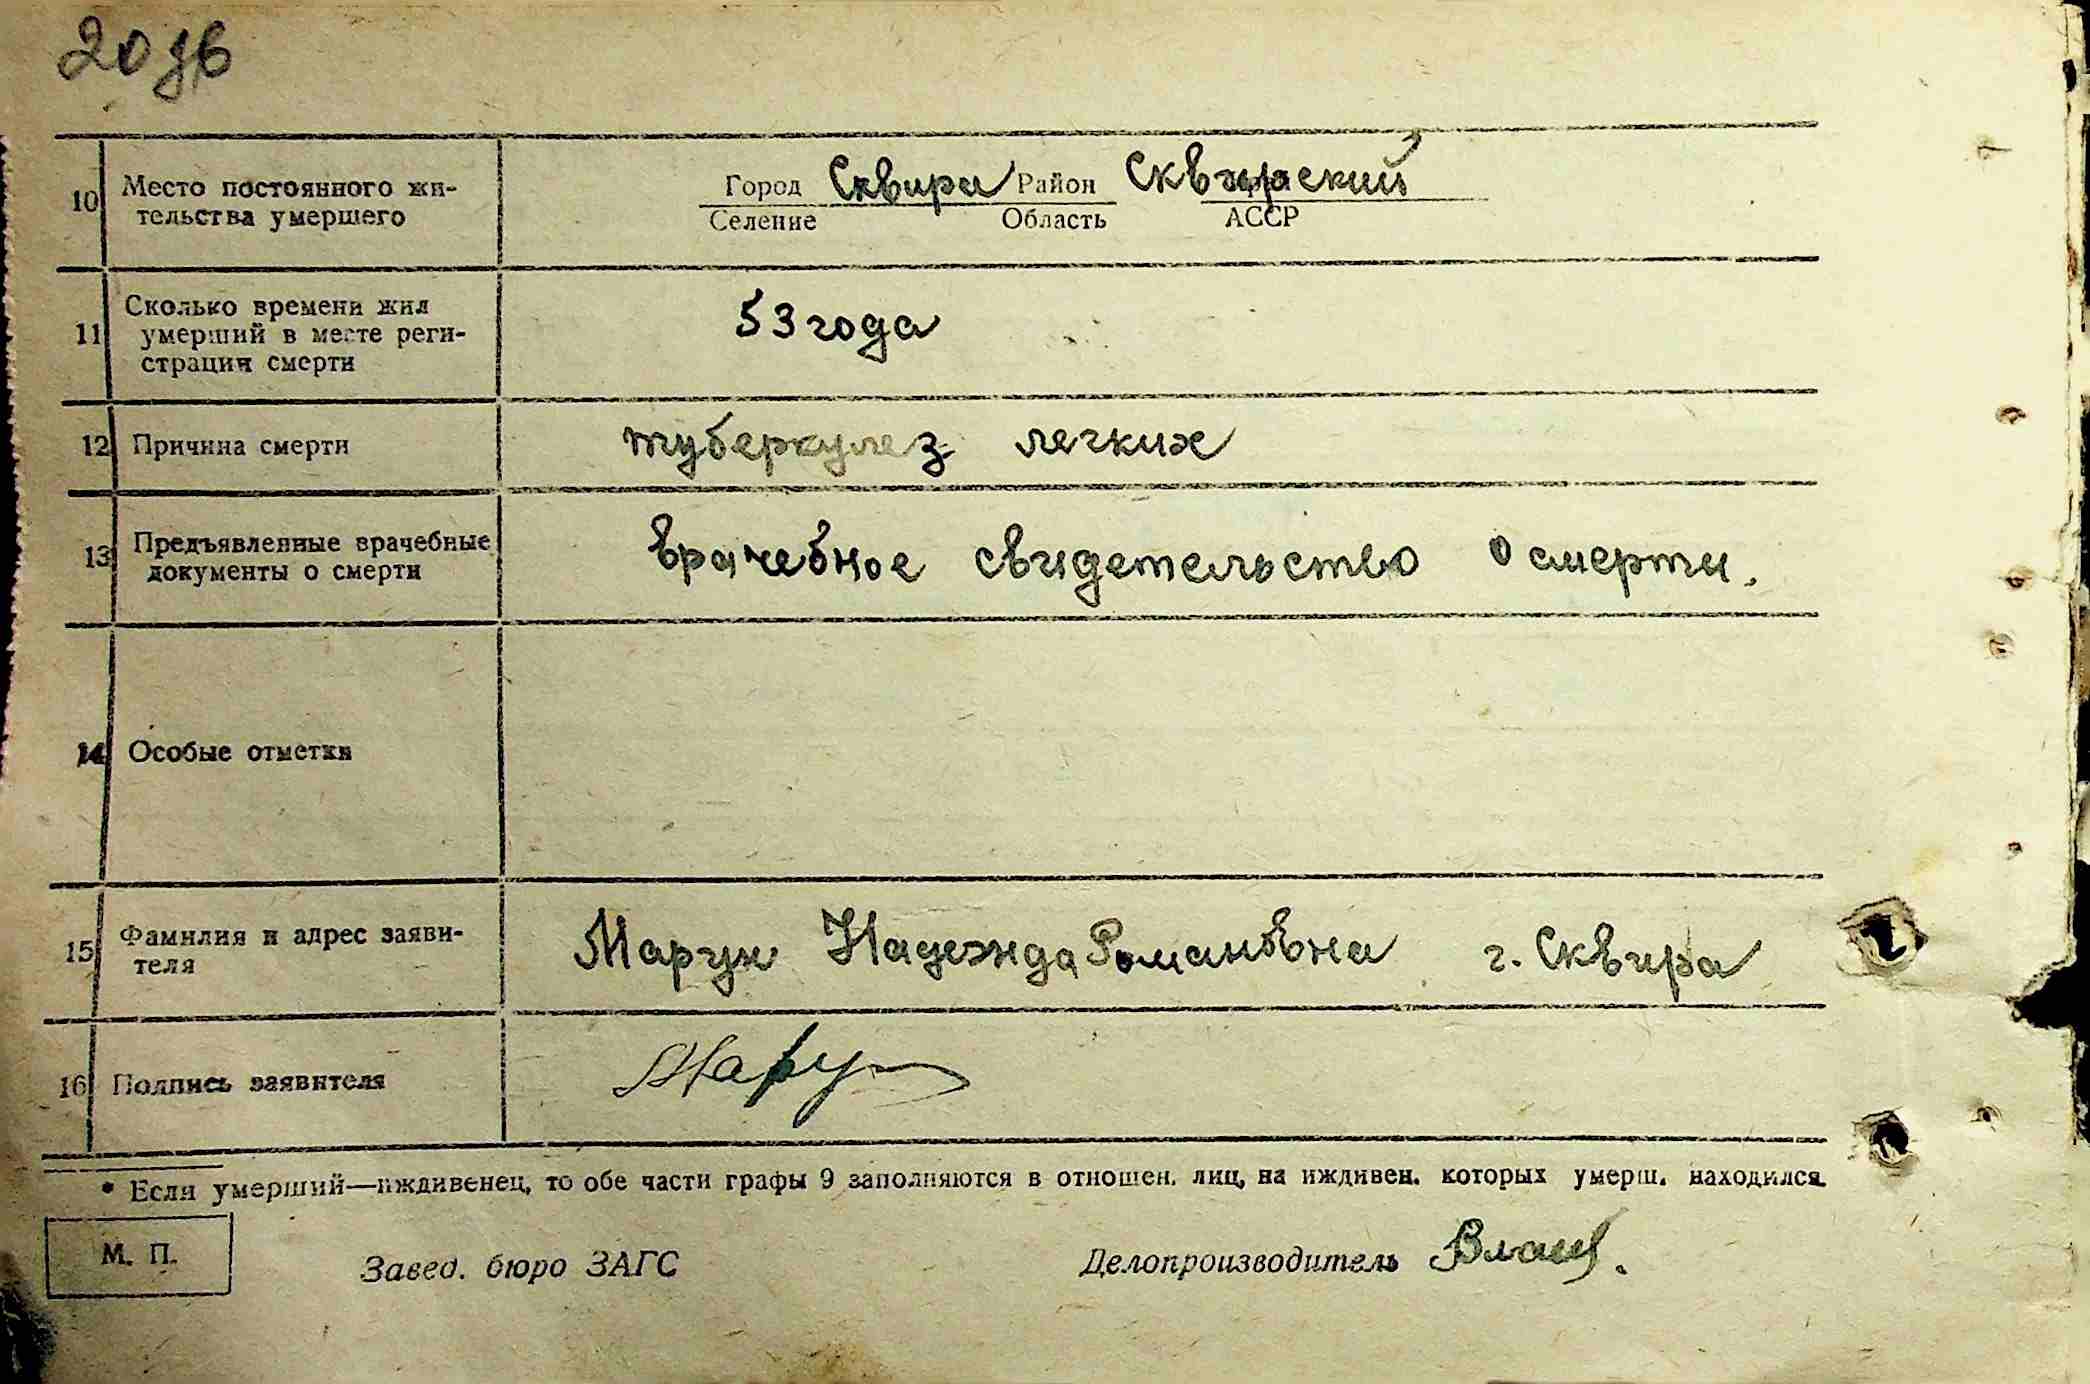 10 Место постоянного жи-
тельства умершего
Город Сквира Район Сквирский
Селение Область АССР
11 Сколько времени жил
умерший в месте реги-
страции смерти
53 года
12 Причина смерти
туберкулез легких
13 Предъявленные врачебные
документы о смерти
врачебное свидетельство о смерти.
14 Особые отметки
15 Фамилия и адрес заяви-
теля
Марун Надежда Романовна г. Сквира
16 Подпись заявителя
Мару
* Если умерший—иждивенец, то обе части графы 9 заполняются в отношен. лиц, на иждивен. которых умерш. находился.
М. П.
Завед. бюро ЗАГС
Делопроизводитель